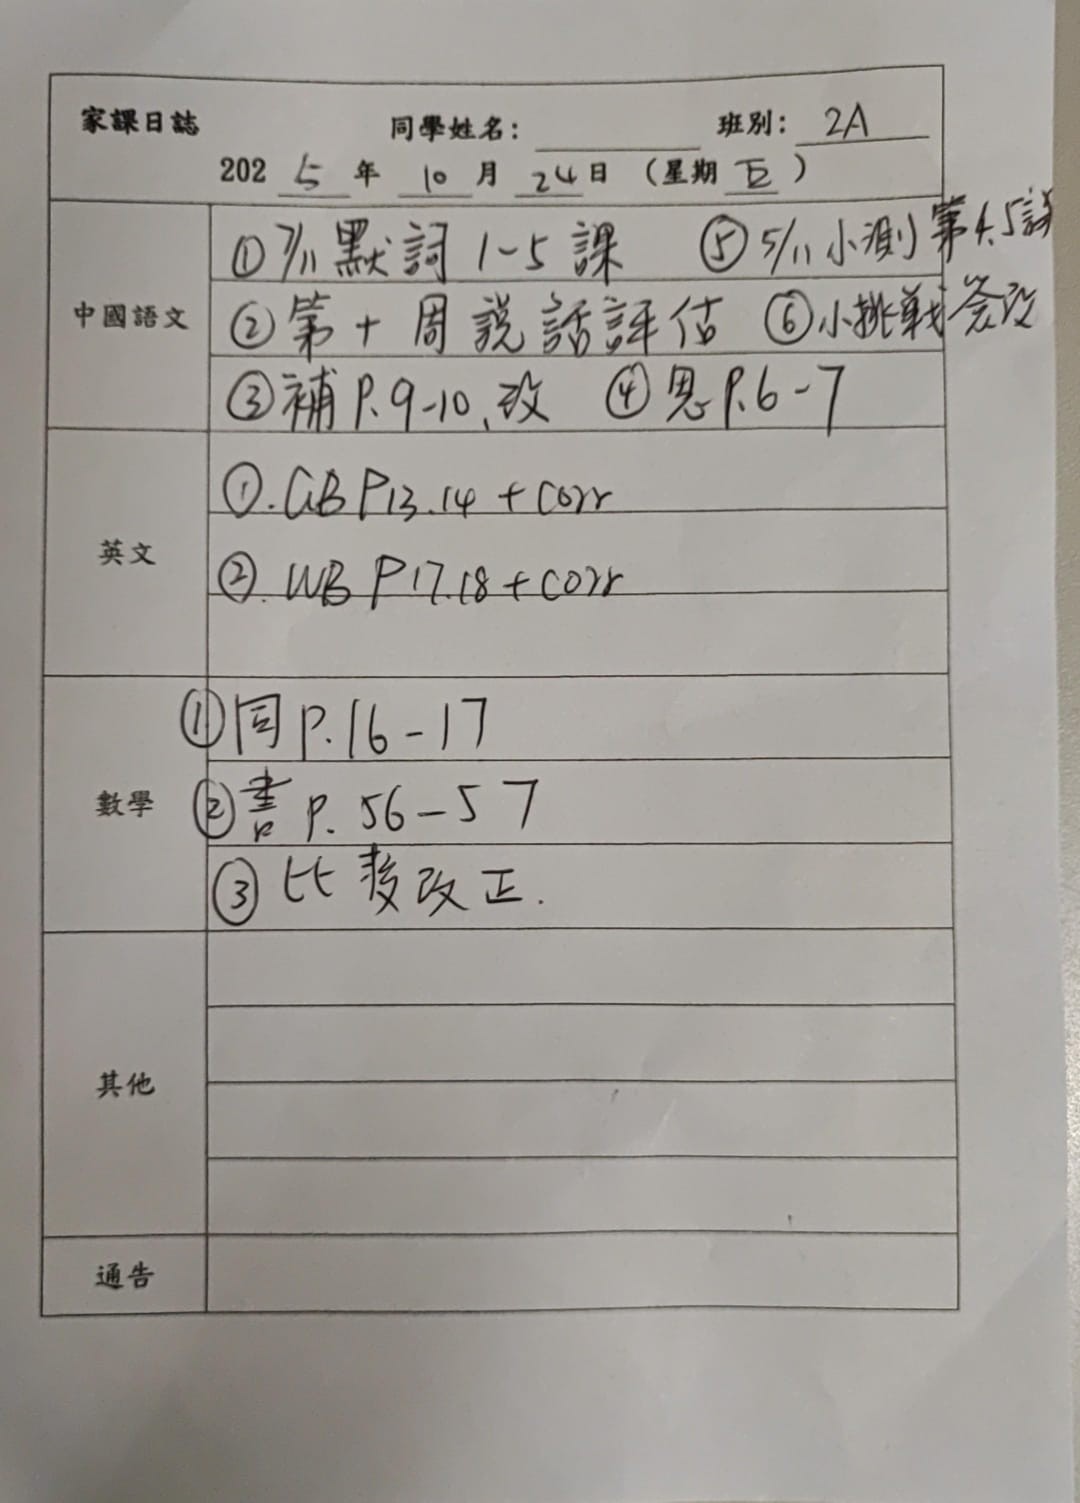 家課日誌 同學姓名： 班別： 2A
202 5 年 10 月 24 日 （星期 五 ）
中國語文
① 7/11 默詞 1-5 課 ⑤ 5/11 小測 第4.5課
② 第十周說話評估 ⑥ 小挑戰 簽改
③ 補 P.9-10、改 ④ 思 P.6-7
英文
①. GB P13.14 + Corr
②. WB P17.18 + Corr
數學
① 同 P.16-17
② 書 P.56-57
③ 比 改正.
其他
通告